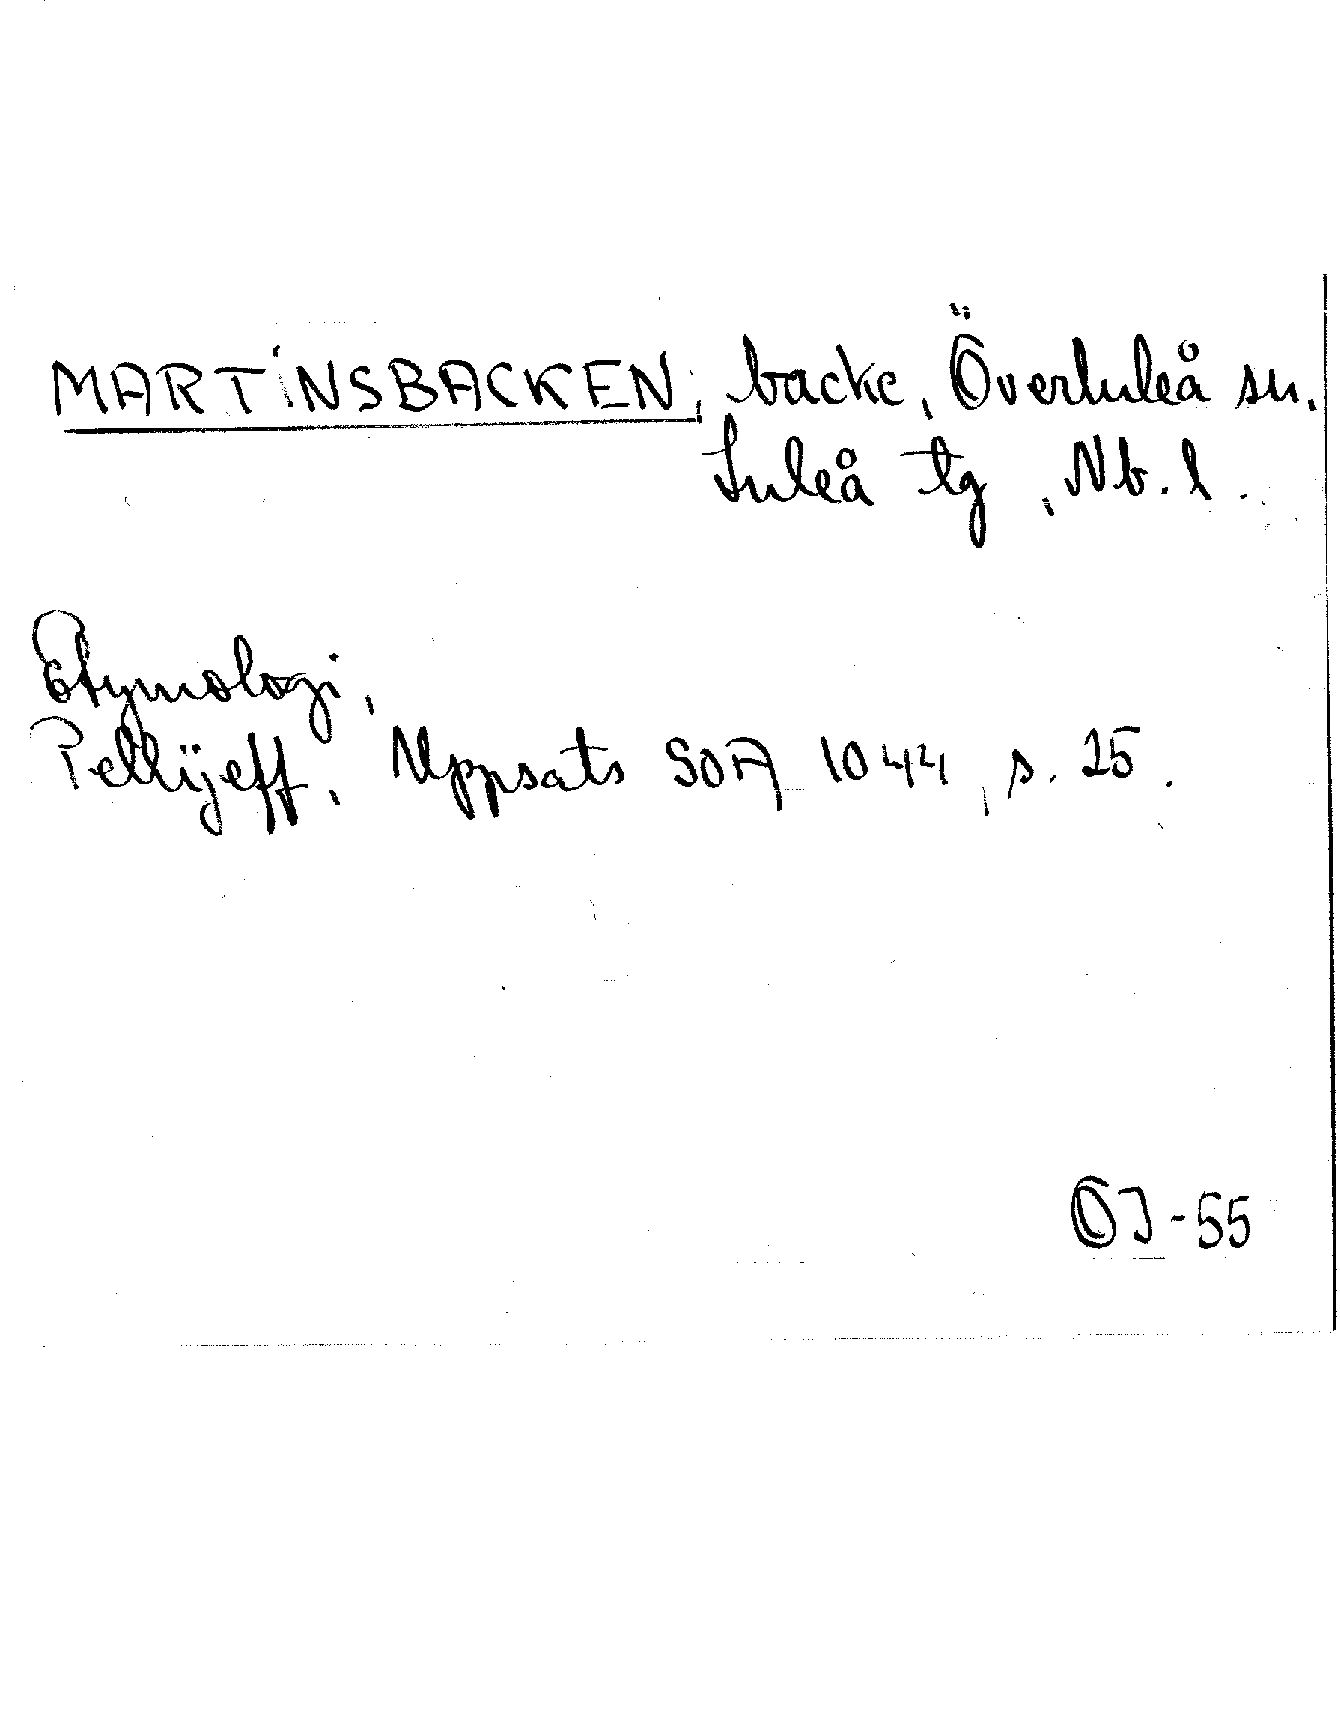 MARTINSBACKEN, backe, Överluleå sn.
Luleå tg, Nb. l.
Etymologi,
Pellijeff, Uppsats SOA 1044, s. 25.
ÖJ-55